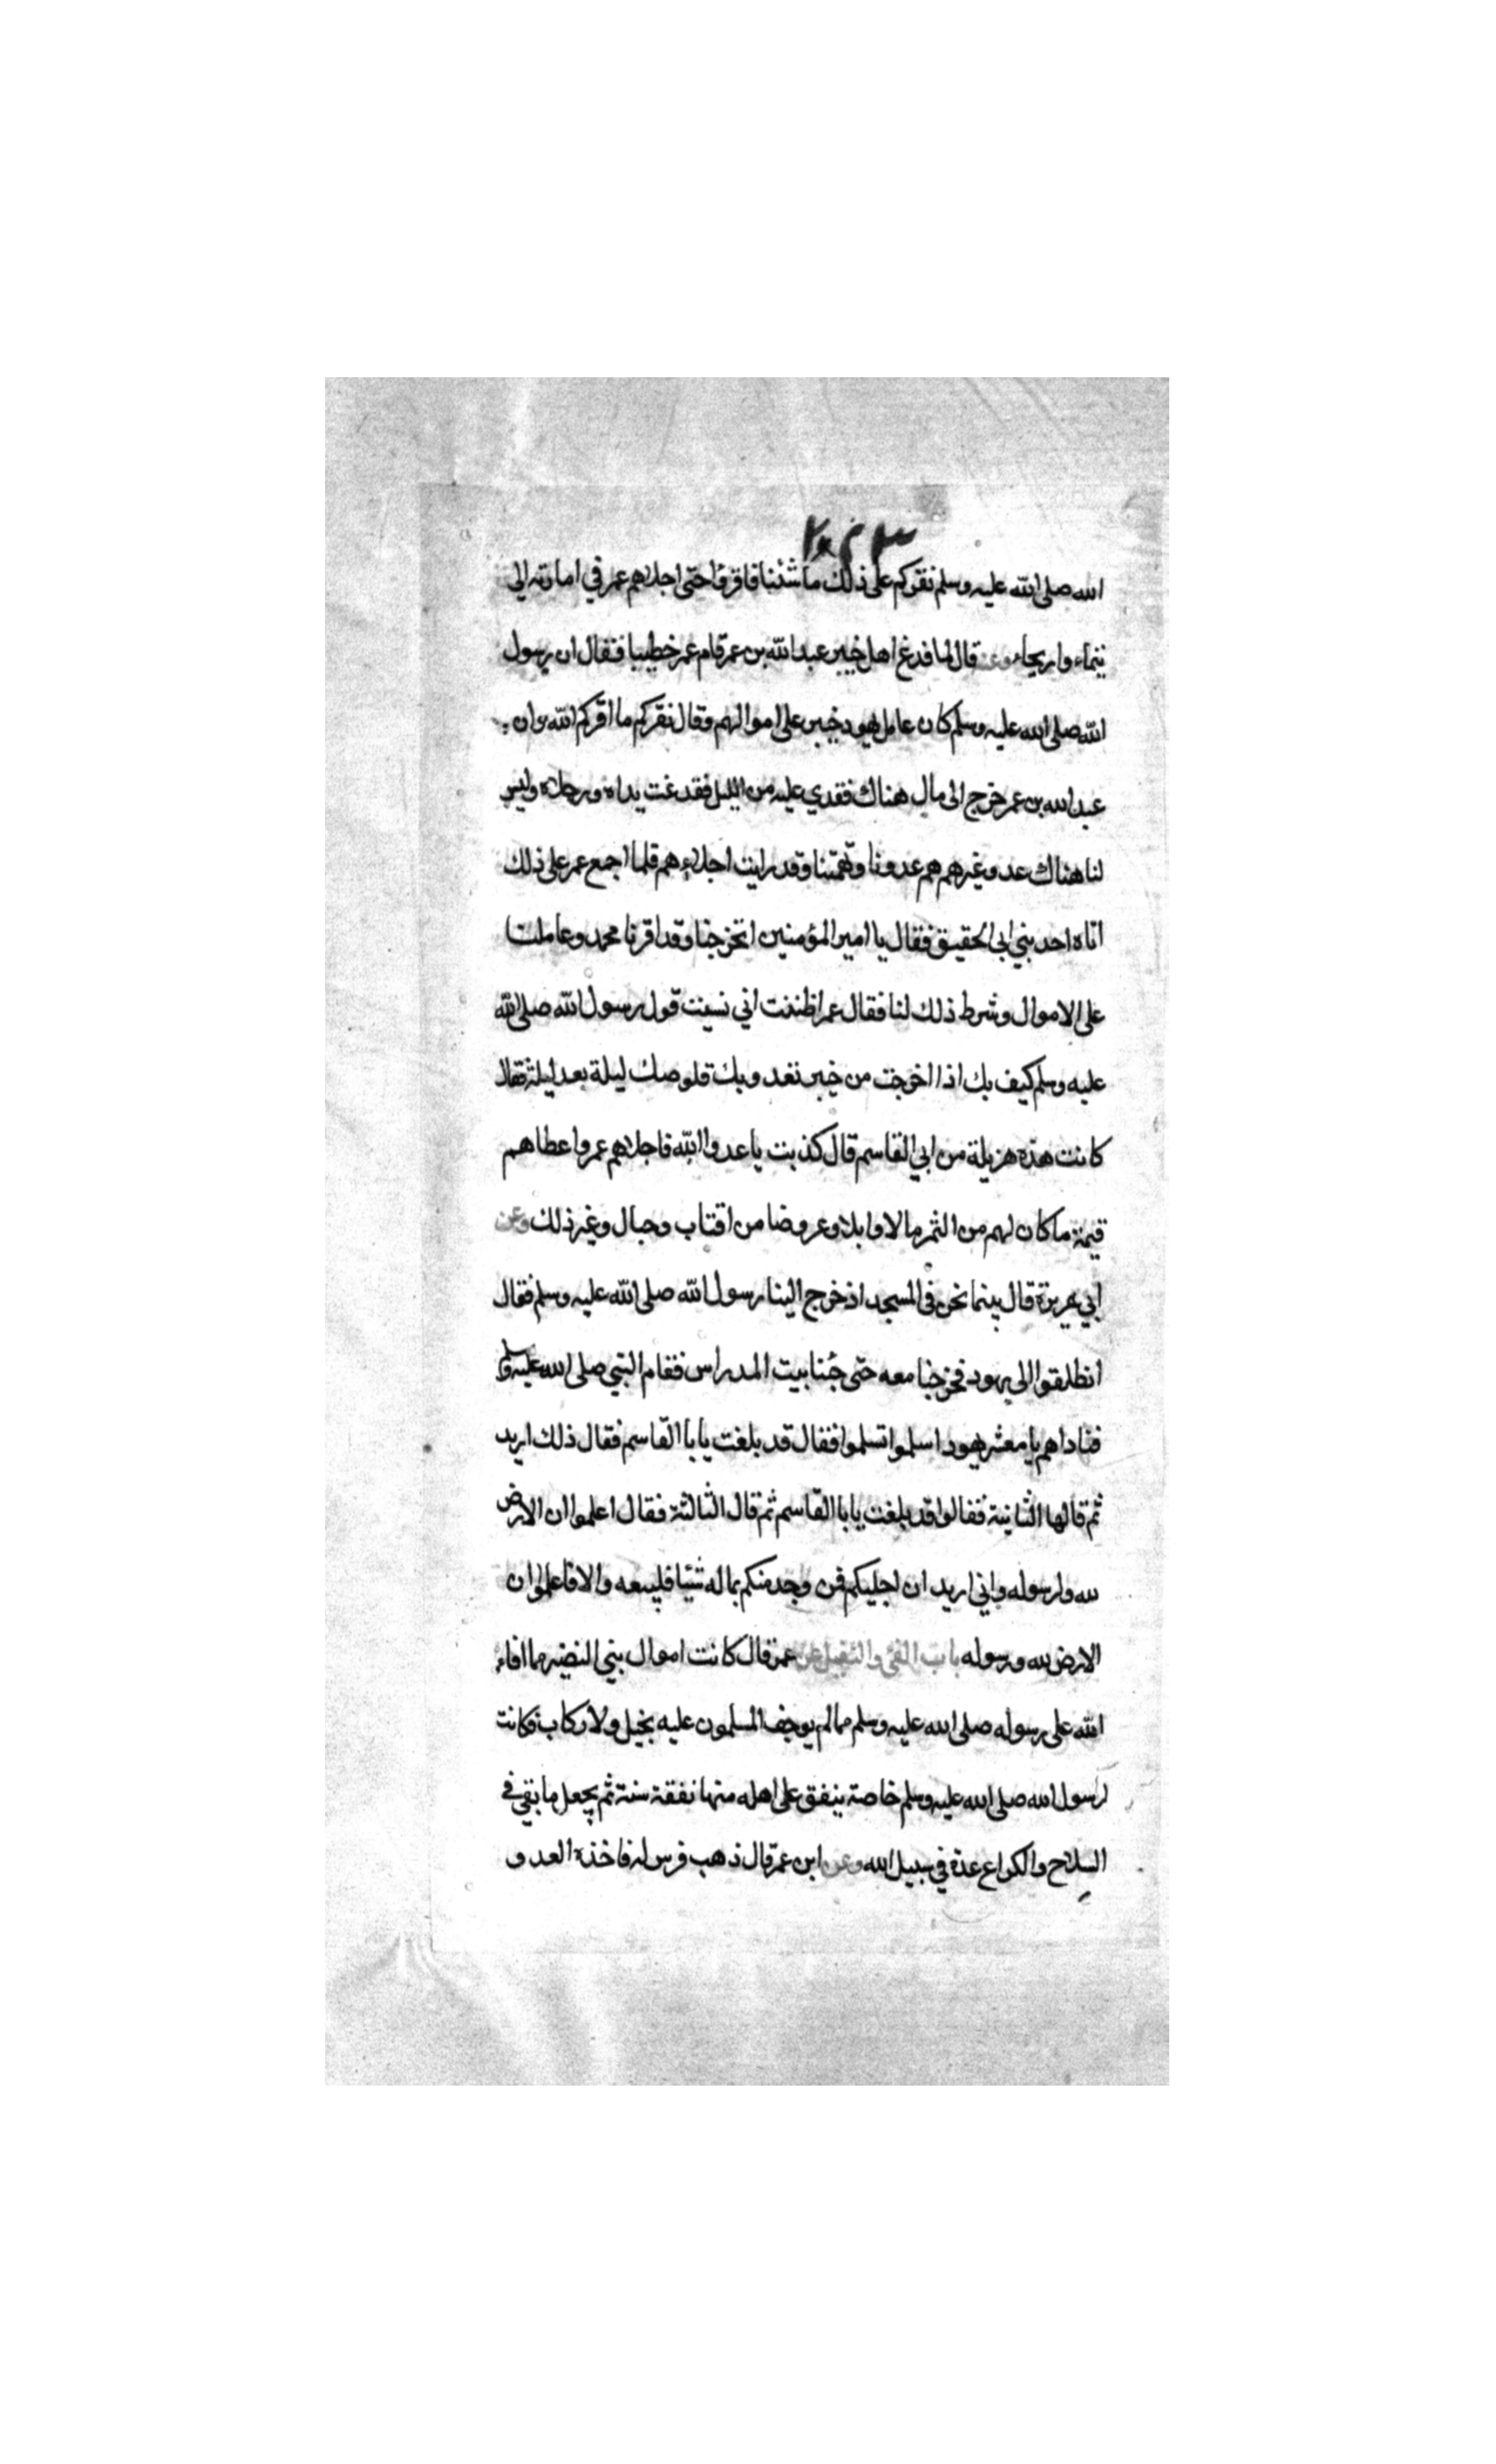 الله صلى الله عليه وسلم نقركم على ذلك ما شئنا فاقروا حتى اجلاهم عمر في امارته الى
تيماء واريحاء وعنه قال لما فدغ اهل خيبر عبد الله بن عمر قام عمر خطيبا فقال ان رسول
الله صلى الله عليه وسلم كان عامل يهود خيبر على اموالهم وقال نقركم ما اقركم الله وان
عبد الله بن عمر خرج الى مال هناك فعدي عليه من الليل فقدغت يداه ورجلاه وليس
لنا هناك عدو غيرهم هم عدونا وتهمتنا وقد رايت اجلاءهم فلما اجمع عمر على ذلك
اتاه احد بني ابي الحقيق فقال يا امير المؤمنين اتخرجنا وقد اقرنا محمد وعاملنا
على الاموال وشرط ذلك لنا فقال عمر اظننت اني نسيت قول رسول الله صلى الله
عليه وسلم كيف بك اذا اخرجت من خيبر تغدو بك قلوصك ليلة بعد ليلة فقال
كانت هذه هزيلة من ابي القاسم قال كذبت يا عدو الله فاجلاهم عمر واعطاهم
قيمة ما كان لهم من الثمر مالا وابلا وعروضا من اقتاب وحبال وغير ذلك وعن
ابي هريرة قال بينما نحن في المسجد اذ خرج الينا رسول الله صلى الله عليه وسلم فقال
انطلقوا الى يهود فخرجنا معه حتى جئنا بيت المدراس فقام النبي صلى الله عليه وسلم
فناداهم يا معشر يهود اسلموا تسلموا فقال قد بلغت يا با القاسم فقال ذلك اريد
ثم قالها الثانية فقالوا قد بلغت يا با القاسم ثم قال الثالثة فقال اعلموا ان الارض
لله ولرسوله واني اريد ان اجليكم فمن وجد منكم بماله شيئا فليبعه والا فاعلموا ان
الارض لله ورسوله باب الفئ والتنفيل عن عمر قال كانت اموال بني النضير مما افاء
الله على رسوله صلى الله عليه وسلم مما لم يوجف المسلمون عليه بخيل ولا ركاب فكانت
لرسول الله صلى الله عليه وسلم خاصة ينفق على اهله منها نفقة سنة ثم يجعل ما بقي في
السلاح والكراع عدة في سبيل الله وعن ابن عمر قال ذهب فرس له فاخذه العدو